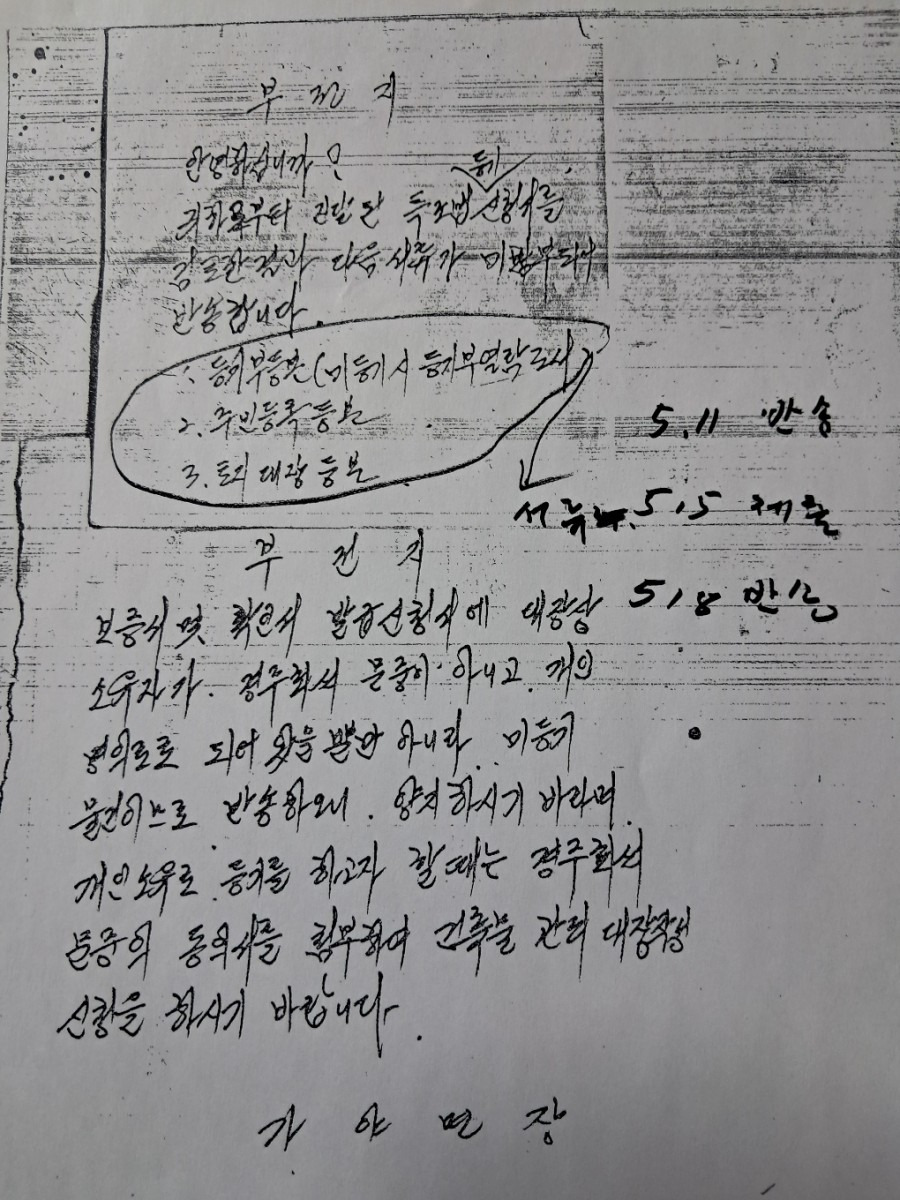 부 전 지
안녕하십니까?
등기
귀하로부터 전달된 특조법 신청서를
검토한 결과 다음 서류가 미첨부되어
반송합니다.
1. 등기부등본(미등기시 등기부열람도서)
2. 주민등록등본
3. 토지대장등본
5.11 반송
서류 5.15 제출
5.18 반송
부 전 지
보증서 및 확인서 발급신청서에 대장상
소유자가. 경주최씨 문중이 아니고 개인
명의로로 되어 있을 뿐만 아니라. 미등기
물건이므로 반송하오니. 양지하시기 바라며.
개인소유로 등기를 하고자 할때는 경주최씨
문중의 동의서를 첨부하여 건축물 관리 대장작성
신청을 하시기 바랍니다.
가 야 면 장